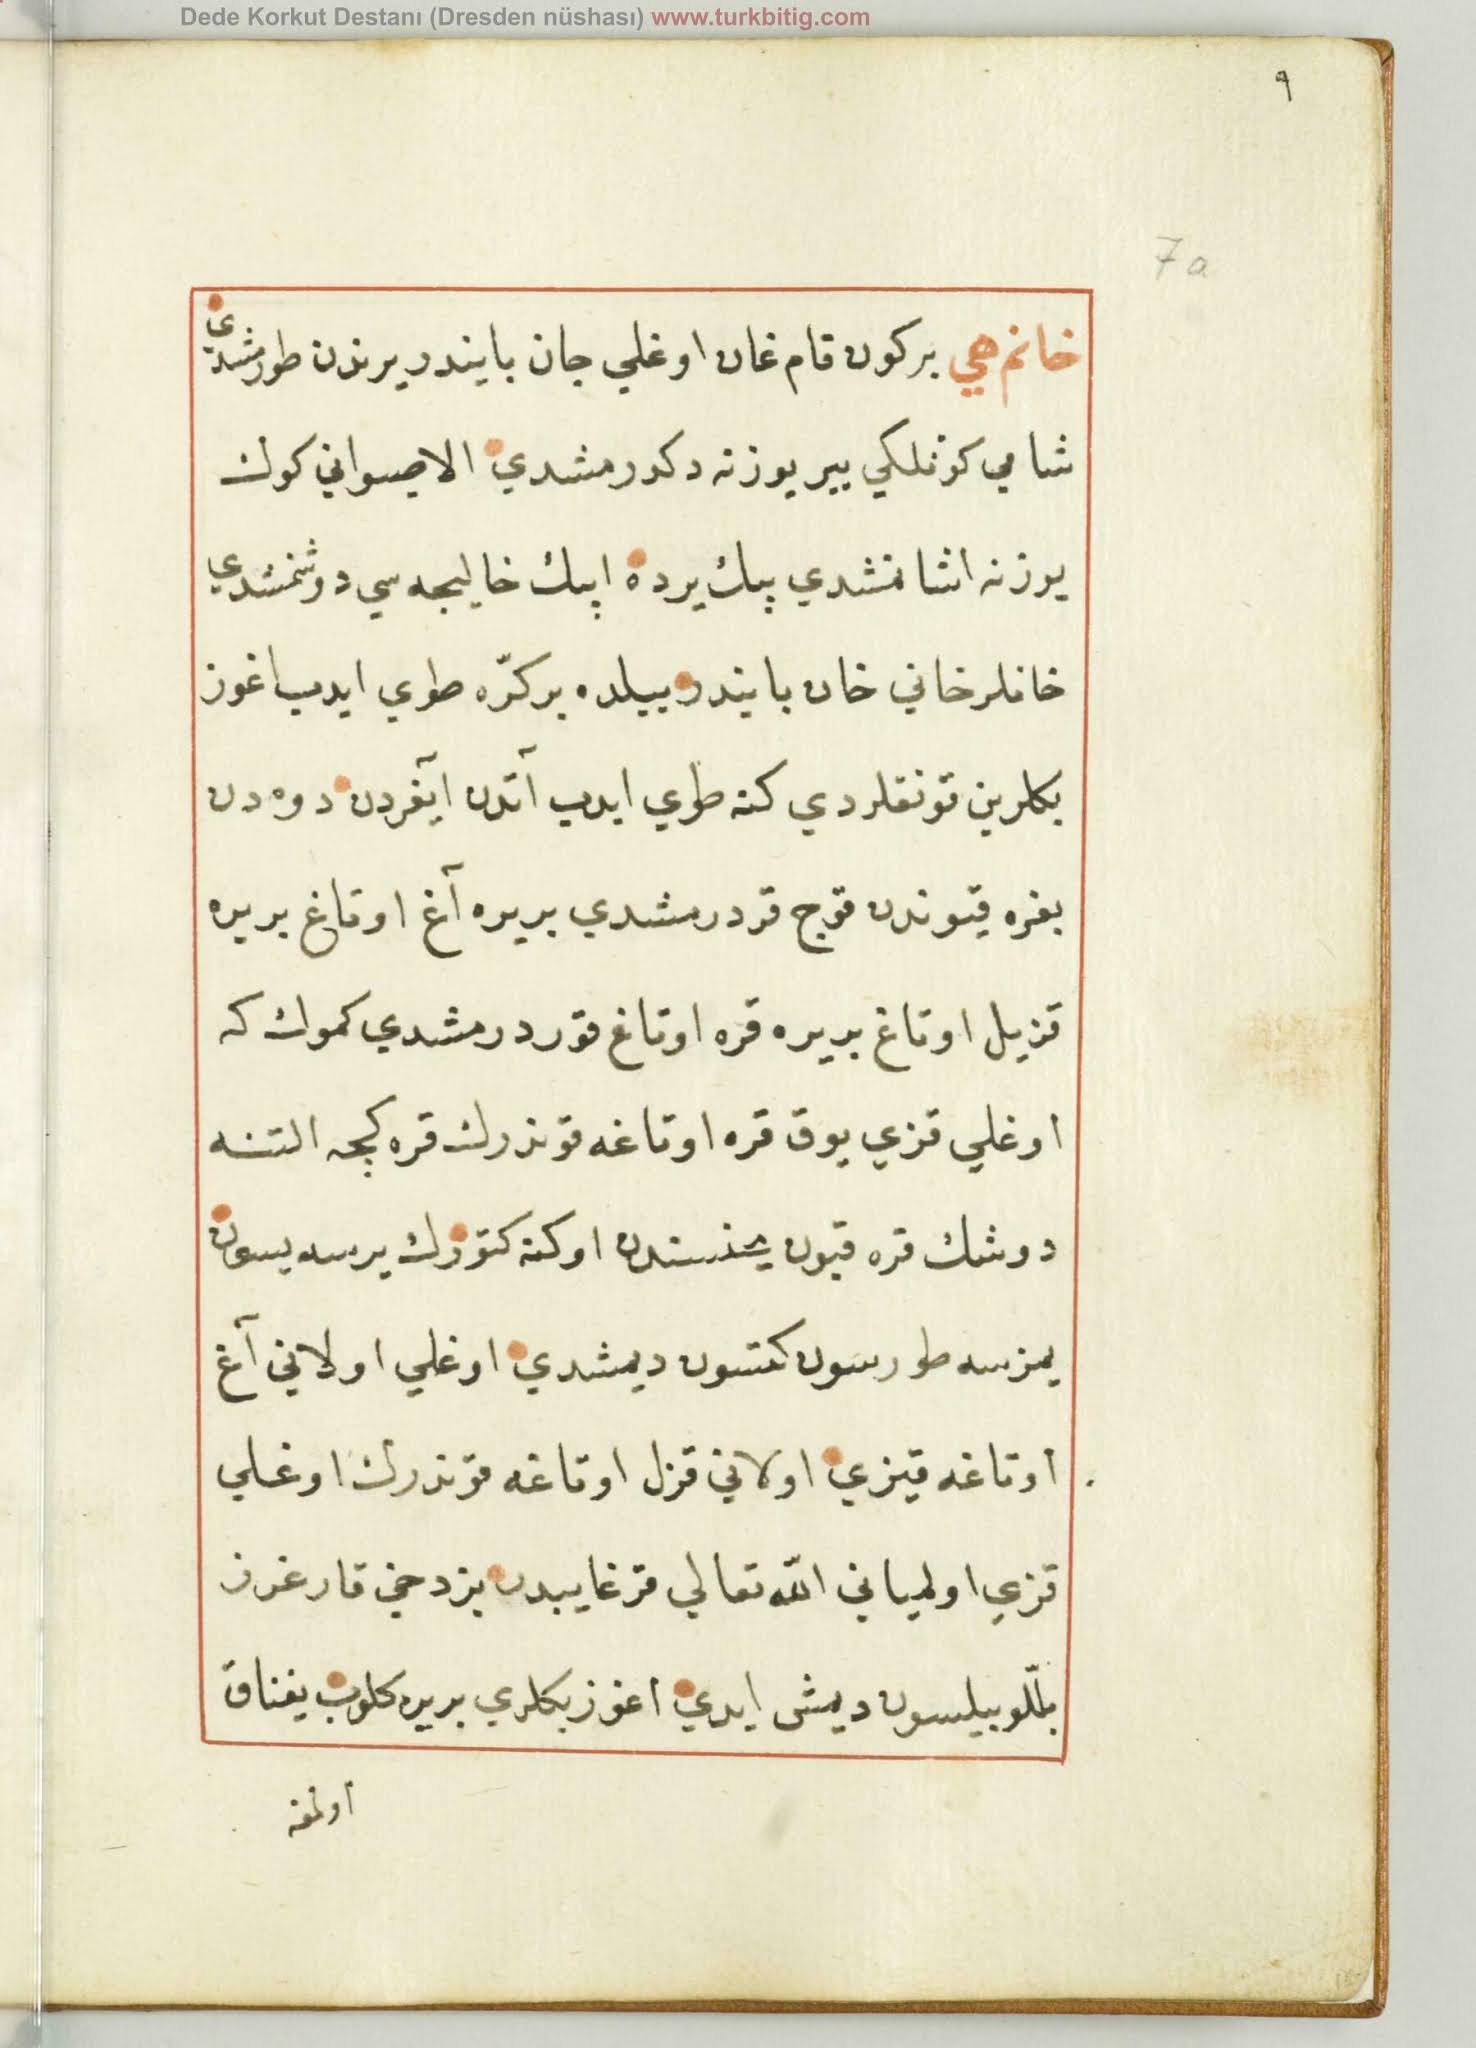 Dede Korkut Destanı (Dresden nüshası) www.turkbitig.com
٩
7a
خانم هي بركون قام غان اوغلي جان بايندر يرندن طورمشدي
شامي كونلكي يير يوزنه دكدرمشدي الا صيواني كوك
يوزنه اشانمشدي بيك يرده ايپك خاليجه سي دوشنمشدي
خانلر خاني خان بايندر ييلده بر كرّه طوي ايدب اغوز
بكلرين قونقلردي كنه طوي ايدب آتدن آيغردن دوه دن
بغره قيوندن قوج قردرمشدي بر يره آغ اوتاغ بر يره
قزيل اوتاغ بر يره قره اوتاغ قوردرمشدي كموك كه
اوغلي قزي يوق قره اوتاغه قوندرك قره كچه التنه
دوشك قره قيون يخنسندن اوكنه كتورك يرسه يسون
يمزسه طورسون كتسون ديمشدي اوغلي اولاني آغ
اوتاغه قيزي اولاني قزل اوتاغه قوندرك اوغلي
قزي اولمياني الله تعالي قرغايبدر بز دخي قارغرز
بللو بيلسون ديمش ايدي اغوز بكلري بر يره كلوب يغناق
اولمغه